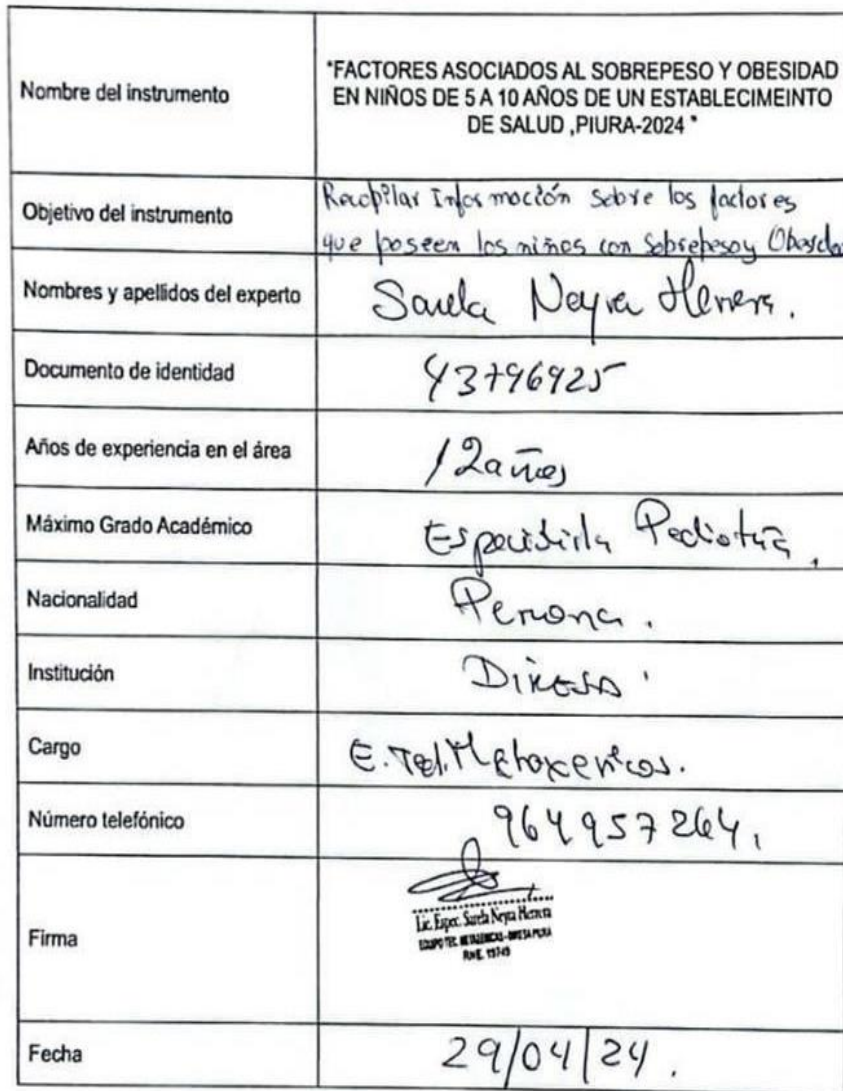 Nombre del instrumento
"FACTORES ASOCIADOS AL SOBREPESO Y OBESIDAD
EN NIÑOS DE 5 A 10 AÑOS DE UN ESTABLECIMEINTO
DE SALUD ,PIURA-2024 "
Objetivo del instrumento
Recopilar Información sobre los factores
que poseen los niños con Sobrepeso y
Nombres y apellidos del experto
Sarela Neyra Herrera.
Documento de identidad
43796925
Años de experiencia en el área
12 años
Máximo Grado Académico
Especialista Pediatría.
Nacionalidad
Peruana.
Institución
DIRESA
Cargo
E. Metaxenicas.
Número telefónico
964957264.
Firma
Lic. Espec. Sarela Neyra Herrera
EQUIPO TEC. DIRESA PIURA
Fecha
29/04/24.